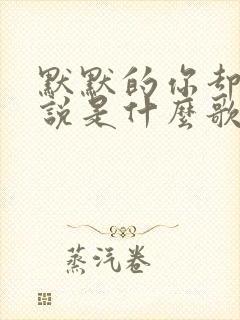 默默的你却
说是什麽歌
蒸汽卷